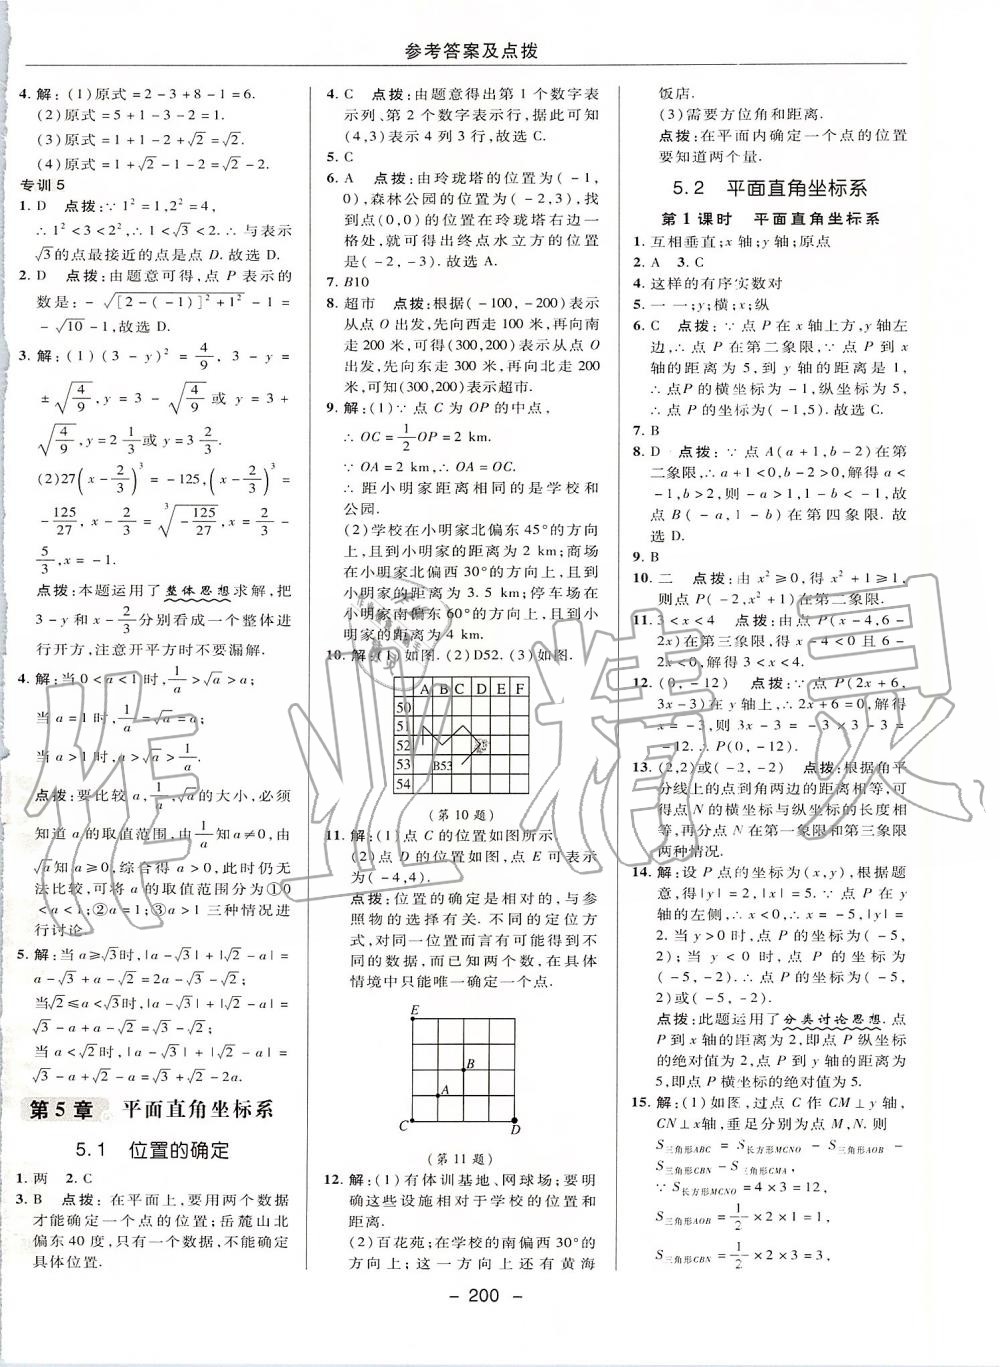 参考答案及点拨
4. 解：(1)原式=2-3+8-1=6.
(2)原式=5+1-3-2=1.
(3)原式=1+√2-1=√2.
(4)原式=1+√2-1-√2+2=2.
专训5
1. D 点拨：∵1²=1,2²=4,
∴1²<3<2²,∴1<√3<2.∴与表示
√3的点最接近的点是点D.故选D.
2. D 点拨：由题意可得，点P表示的
数是：-√([2-(-1)]²+1²)-1=
-√10-1,故选D.
3. 解：(1)(3-y)²=4/9, 3-y=
±√(4/9), y=3-√(4/9) 或 y=3+
√(4/9), y=2 1/3 或 y=3 2/3.
(2)27(x-2/3)³=-125,(x-2/3)³=
-125/27, x-2/3=∛(-125/27), x-2/3=-
5/3, x=-1.
点拨：本题运用了整体思想求解，将
3-y和x-2/3分别看成一个整体进
行开方，注意开平方时不要漏解.
4. 解：当0<a<1时, 1/a>√a>a;
当a=1时, 1/a=√a=a;
当a>1时, a>√a>1/a.
点拨：要比较a,1/a,√a的大小，必须
知道a的取值范围，由1/a知a≠0,由
√a知a≥0,综合得a>0,此时仍无
法比较，可将a的取值范围分为①0
<a<1;②a=1;③a>1三种情况进
行讨论.
5. 解：当a≥√3时,|a-√3|+|√2-a|=
a-√3+a-√2=2a-√3-√2.
当√2≤a<√3时,|a-√3|+|√2-a|=
√3-a+a-√2=√3-√2.
当a<√2时,|a-√3|+|√2-a|=
√3-a+√2-a=√3+√2-2a.
第5章 平面直角坐标系
5.1 位置的确定
1. 两 2. C
3. B 点拨：在平面上，要用两个数据
才能确定一个点的位置；岳麓山北
偏东40度，只有一个数据，不能确定
具体位置.
4. C 点拨：由题意得出第1个数字表
示列、第2个数字表示行，据此可知
(4,3)表示4列3行，故选C.
5. C
6. A 点拨：由玲珑塔的位置为(-1,
0),森林公园的位置为(-2,3),找
到点(0,0)的位置在玲珑塔右边一
格处，就可得出终点水立方的位置
是(-2,-3).故选A.
7. B10
8. 超市 点拨：根据(-100,-200)表示
从点O出发，先向西走100米，再向南
走200米，可得(300,200)表示从点O
出发，先向东走300米、再向北走200
米，可知(300,200)表示超市.
9. 解：(1)∵点C为OP的中点，
∴OC=1/2OP=2 km.
∵OA=2 km,∴OC=OA.
∴距小明家距离相同的是学校和
公园.
(2)学校在小明家北偏东45°的方向
上，且到小明家的距离为2 km;商场
在小明家北偏西30°的方向上，且到
小明家的距离为3.5 km;停车场在
小明家南偏东60°的方向上，且到小
明家的距离为4 km.
10. 解：(1)如图.(2)D52.(3)如图.
A B C D E F
50
51
52
53 B53
54
(第10题)
11. 解：(1)点C的位置如图所示.
(2)点D的位置如图，点E可表示
为(-4,4).
点拨：位置的确定是相对的，与参
照物的选择有关.不同的定位方
式，对同一位置而言有可能得到不
同的数据，而已知两个数，在具体
情境中只能唯一确定一个点.
E
B
A
C D
(第11题)
12. 解：(1)有体训基地、网球场；要明
确这些设施相对于学校的位置和
距离.
(2)百花苑；在学校的南偏西30°的
方向上；这一方向上还有黄海
饭店.
(3)需要方位角和距离.
点拨：在平面内确定一个点的位置
要知道两个量.
5.2 平面直角坐标系
第1课时 平面直角坐标系
1. 互相垂直；x轴；y轴；原点
2. A 3. C
4. 这样的有序实数对
5. 一一；横；x；纵
6. C 点拨：∵点P在x轴上方，y轴左
边，∴点P在第二象限.∵点P到x
轴的距离为5,到y轴的距离是1,
∴点P的横坐标为-1,纵坐标为5,
∴点P的坐标为(-1,5).故选C.
7. B
8. D 点拨：∵点A(a+1,b-2)在第
二象限，∴a+1<0,b-2>0,解得a<
-1,b>2,则-a>1,1-b<-1,故
点B(-a,1-b)在第四象限.故
选D.
9. B
10. 二 点拨：由x²≥0,得x²+1≥1,
则点P(-2,x²+1)在第二象限.
11. 3<x<4 点拨：由点P(x-4,6-
2x)在第三象限，得x-4<0且6-
2x<0,解得3<x<4.
12. (0,-12) 点拨：∵点P(2x+6,
3x-3)在y轴上，∴2x+6=0,解得
x=-3,则3x-3=-3×3-3=
-12.∴P(0,-12).
13. (2,2)或(-2,-2) 点拨：根据角平
分线上的点到角两边的距离相等，可
得点N的横坐标与纵坐标的长度相
等，再分点N在第一象限和第三象限
两种情况.
14. 解：设P点的坐标为(x,y),根据题
意，得|y|=2,|x|=5.∵点P在y
轴的左侧，∴x<0,∴x=-5,|y|=
2.当y>0时，点P的坐标为(-5,
2);当y<0时，点P的坐标为
(-5,-2).∴点P的坐标为(-5,
2)或(-5,-2).
点拨：此题运用了分类讨论思想.点
P到x轴的距离为2,即点P纵坐标
的绝对值为2,点P到y轴的距离为
5,即点P横坐标的绝对值为5.
15. 解：(1)如图，过点C作CM⊥y轴，
CN⊥x轴，垂足分别为点M,N.则
S三角形ABC=S长方形MCNO-S三角形AOB-
S三角形CBN-S三角形ACM.
∵S长方形MCNO=4×3=12,
S三角形AOB=1/2×2×1=1,
S三角形CBN=1/2×2×3=3,
- 200 -
作业精灵